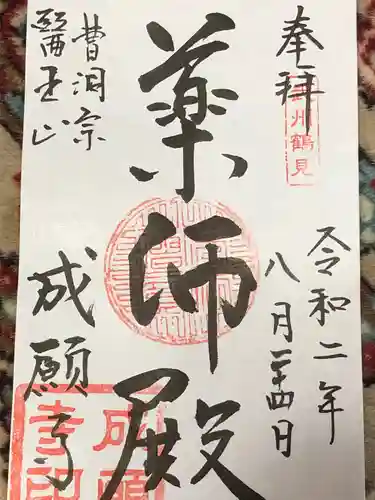 奉拝
州鶴見
令和二年
八月二十四日
薬師殿
曹洞宗
醫王山
成願寺
成願
寺印